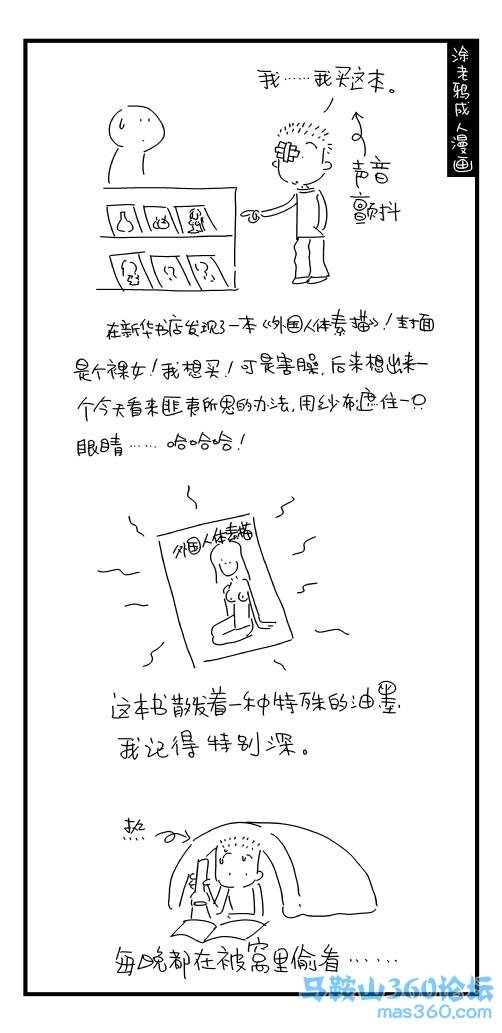 涂老鸦成人漫画
我……我买这本。
声音
颤抖
在新华书店发现了一本《外国人体素描》！封面
是个裸女！我想买！可是害臊，后来想出来一
个今天看来匪夷所思的办法，用纱布遮住一只
眼睛……哈哈哈！
外国人体素描
这本书散发着一种特殊的油墨，
我记得特别深。
热
每晚都在被窝里偷看……
马鞍山360论坛
mas360.com